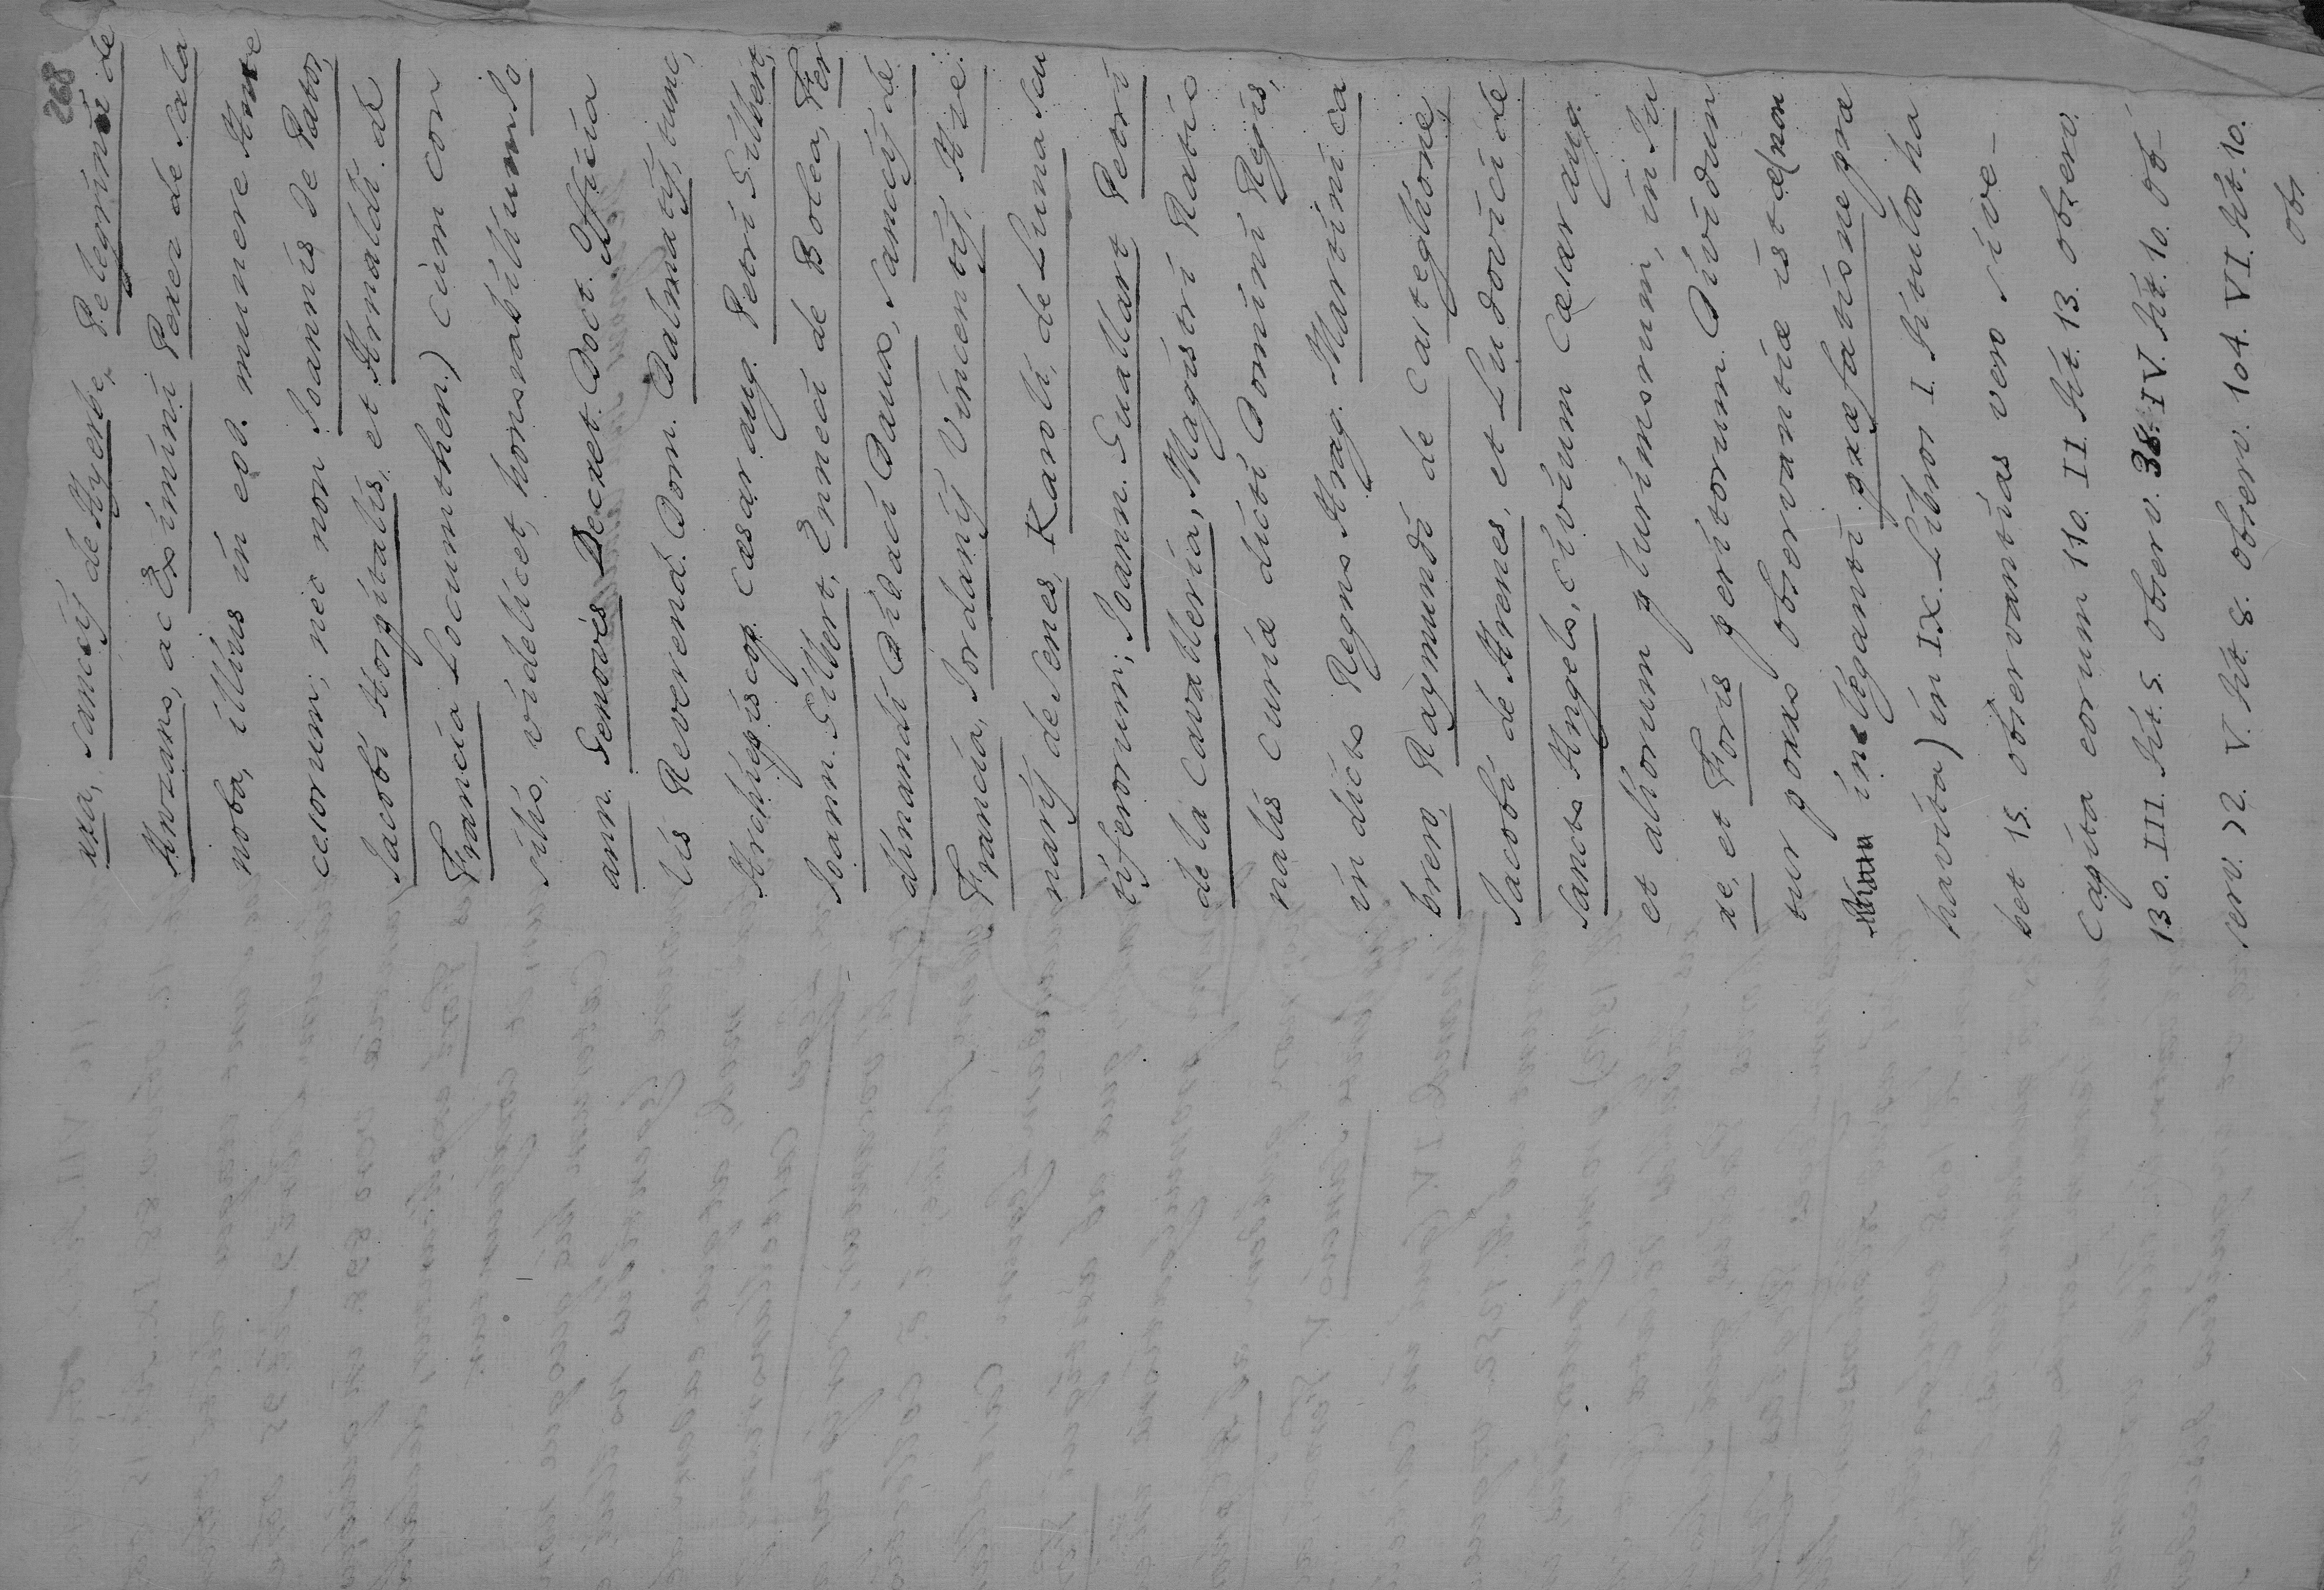 268
xxa, Sancij de Ayerbe, Pelegrini de
Anzano, ac Eximini Perez de Sala
noba, illius in eod. munere Ante
cesorum; nec non Ioannis de Pato,
Iacobi Hospitalis, et Arnaldi de
Francia Locumthen.) cum con
silio, videlicet, honorabilium Io
ann. Genovés Decret. Doct. Officia
lis Reverend. Dom. Dalmatij, tunc,
Archiepiscop. Cæsaraug. Petri Gilbert,
Ioann. Gilbert, Enneci de Bolea, Fer
dinandi Didaci Daux, Sancij de
Francia, Iordanij Vincentij, Ate
narij de Senes, Karoli, de Luna scu
tiferorum; Ioann. Guallart Petri
de la Cavalleria, Magistri Ratio
nalis curiæ dicti Domini Regis,
in dicto Regno Arag. Martini ca
brero, Raymundi de Casteglione,
Iacobi de Arenes, et Ludovici de
Sancto Angelo, civium Cæsaraug.
et aliorum plurimorum, in Iu
re, et Foris peritorum. Dividun
tur porro Observantiæ istæ (non
intliganti præfatisne præ
havita) in IX. Libros I. titulos ha
bet 15. observantias vero sive
Capita eorum 110. II. tit. 13. observ.
130. III. tit. 5. observ. 38. IV. tit. 10. ob
serv. 72. V. tit. 8. observ. 104. VI. tit. 10.
obs